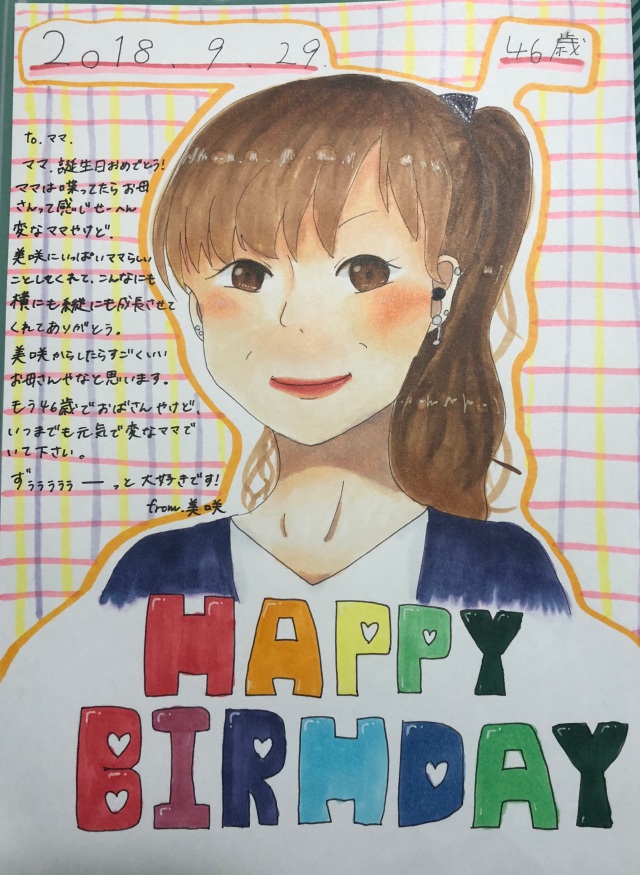 2018.9.29.
46歳
to.ママ.
ママ、誕生日おめでとう!
ママは喋ってたらお母
さんって感じせーへん
変なママやけど、
美咲にいっぱいママらしい
ことしてくれて、こんなにも
横にも縦にも成長させて
くれてありがとう。
美咲からしたらすごくいい
お母さんやなと思います。
もう46歳でおばさんやけど、
いつまでも元気で変なママで
いて下さい。
ずぅぅぅぅぅーっと大好きです!
from.美咲
HAPPY
BIRHDAY